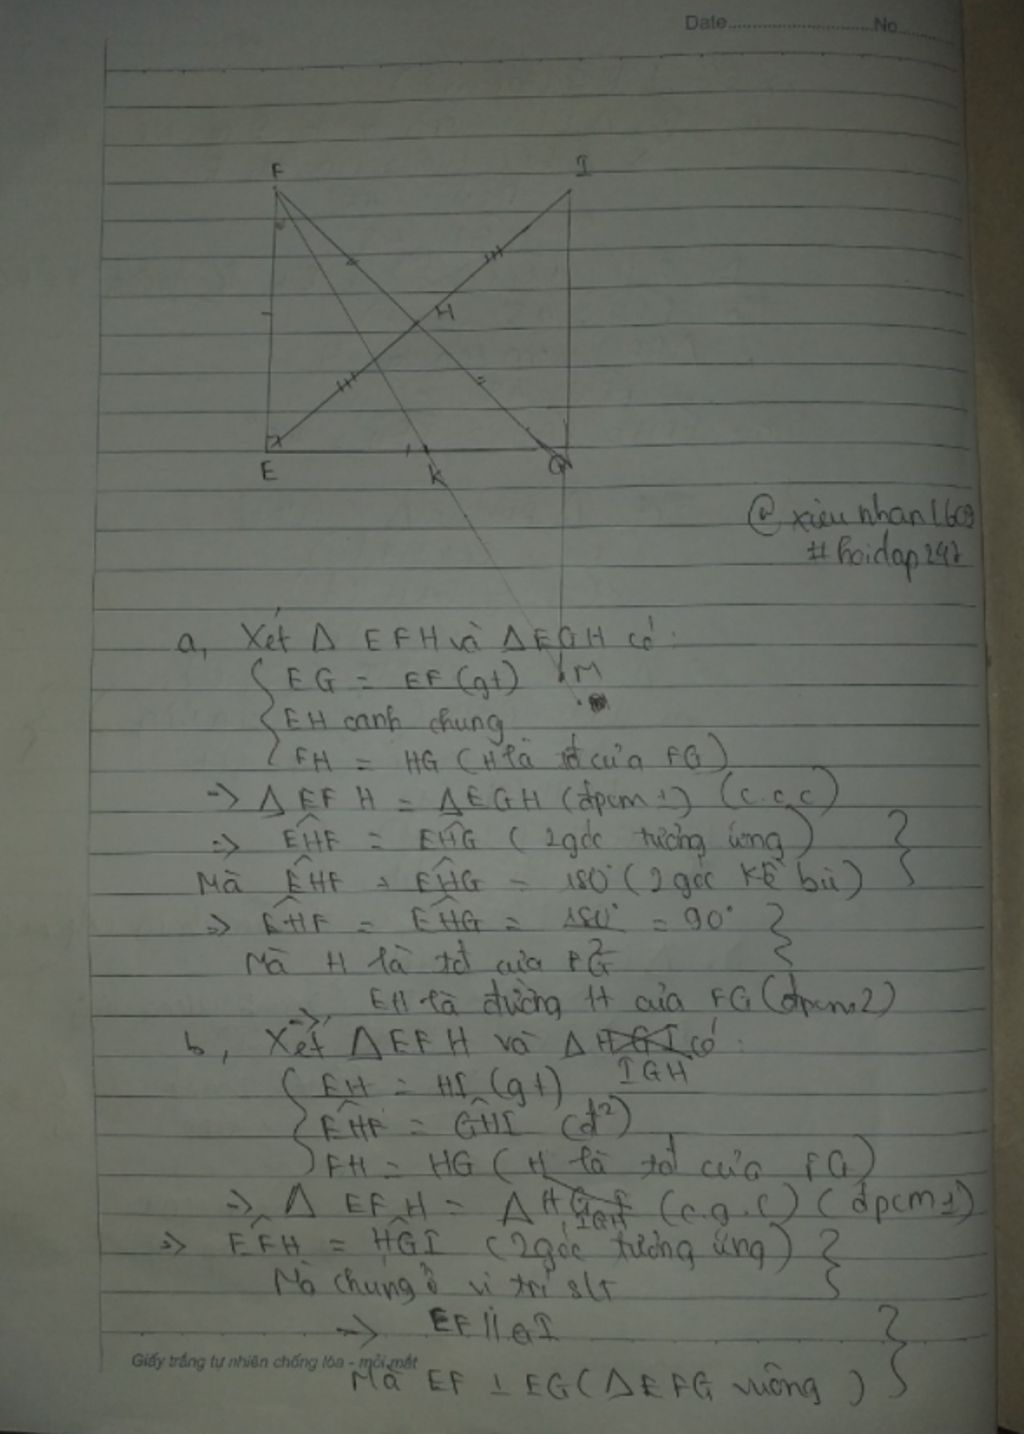 Date No
F I
H
E K G
@ xieunhan1609
#hoidap247
a, Xét Δ EFH và ΔEGH có:
EG = EF (gt)
M
EH canh chung
FH = HG (H là tđ của FG)
=> Δ EFH = ΔEGH (đpcm1) (c.c.c)
=> EHF = EHG (2 góc tương ứng)
Mà EHF + EHG = 180° (2 góc kề bù)
=> EHF = EHG = 180°/2 = 90°
Mà H là tđ của FG
=> EH là đường H của FG (đpcm2)
b, Xét ΔEFH và Δ IGH có:
EH = HI (gt)
EHF = GHI (đ²)
FH = HG (H là tđ của FG)
=> Δ EFH = Δ IGH (c.g.c) (đpcm1)
=> EFH = HGI (2 góc tương ứng)
Mà chúng ở vị trí slt
=> EF // GI
Giấy trắng tự nhiên chống lóa - mỏi mắt
Mà EF ⊥ EG (ΔEFG vuông)